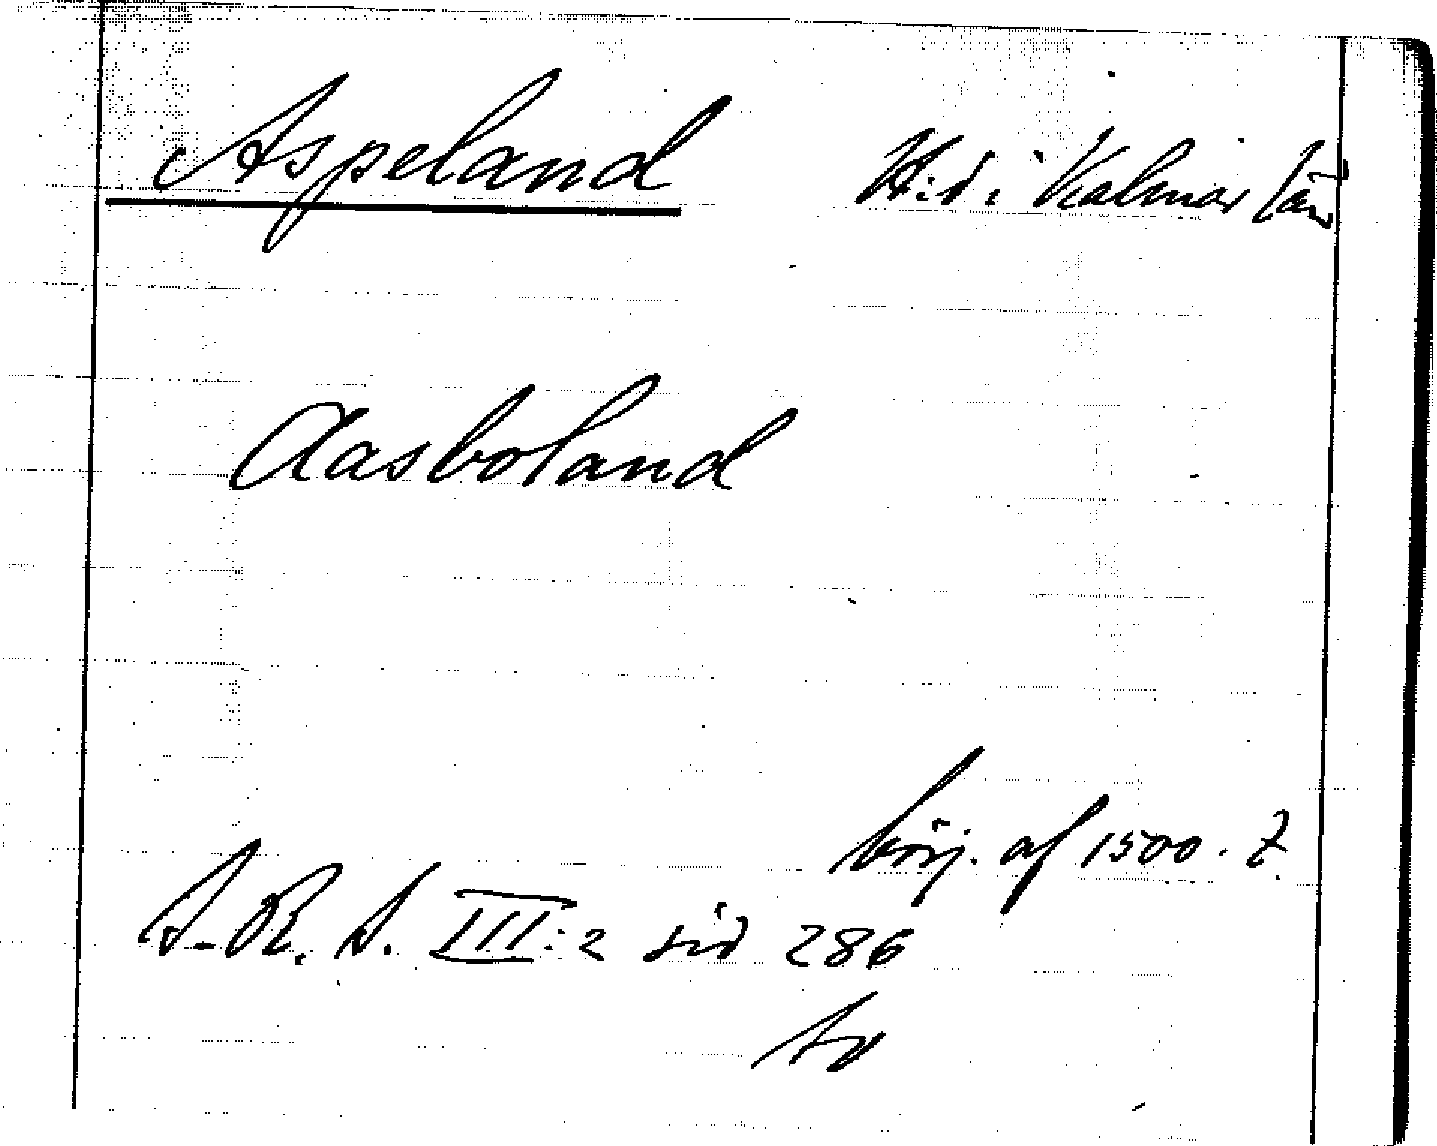 Aspeland H:d i Kalmar län
Aasboland
börj. af 1500. t.
S. R. S. III:2 sid 286